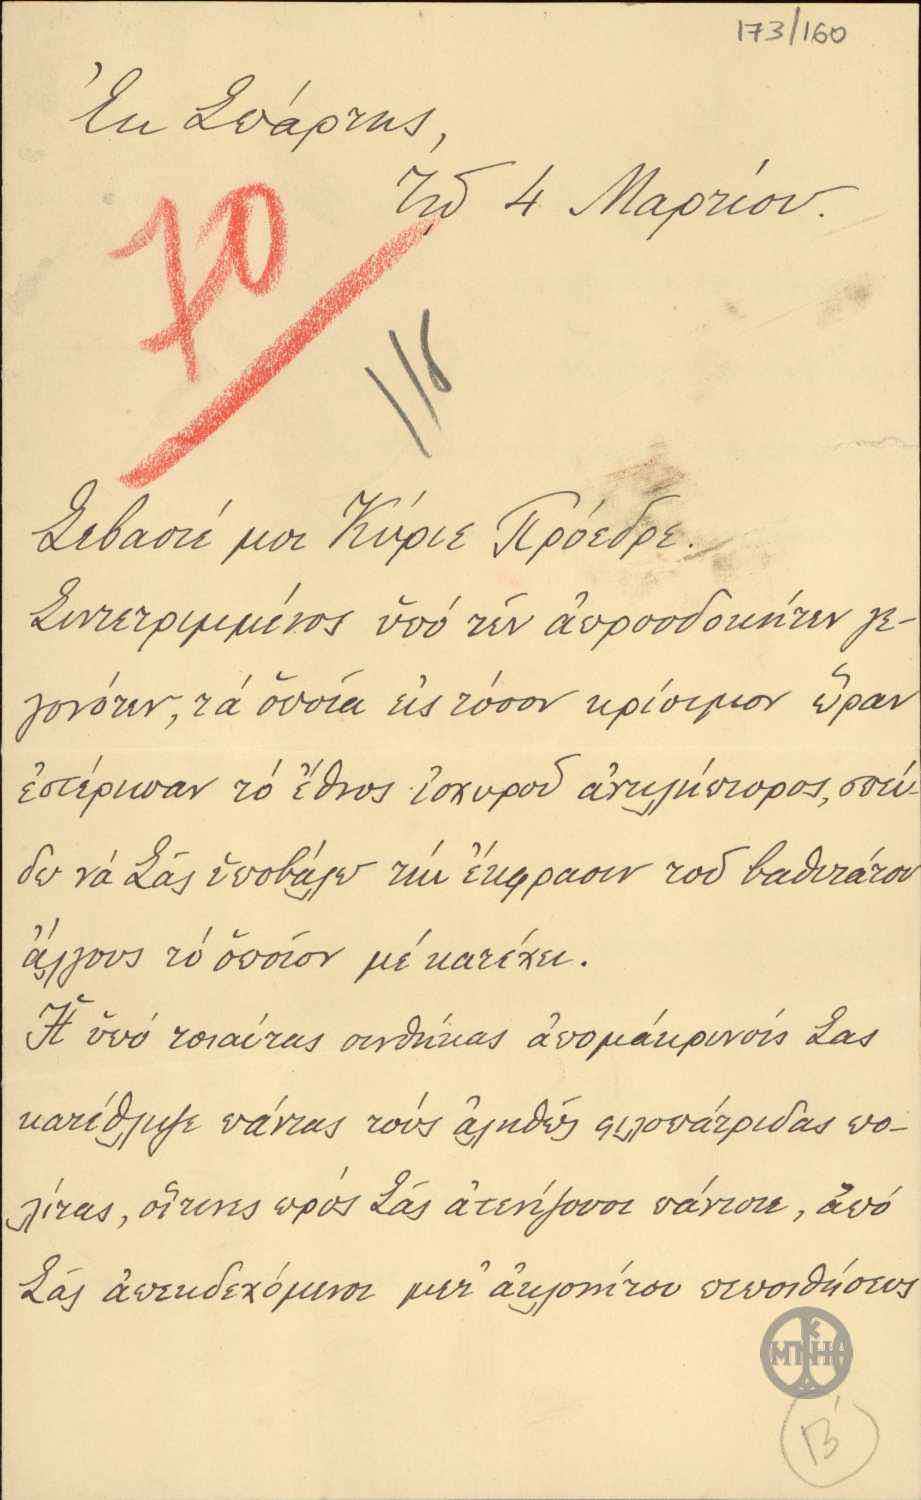 173/160
Ἐκ Σπάρτης,
τῇ 4 Μαρτίου.
70
116
Σεβαστέ μοι Κύριε Πρόεδρε.
Συντετριμμένος ὑπό τῶν ἀπροσδοκήτων γε-
γονότων, τά ὁποῖα εἰς τόσον κρίσιμον ὥραν
ἐστέρησαν τό ἔθνος ἰσχυροῦ ἀντιλήπτορος, σπεύ-
δω νά Σᾶς ὑποβάλω τήν ἔκφρασιν τοῦ βαθυτάτου
ἄλγους τό ὁποῖον μέ κατέχει.
Ἡ ὑπό τοιαύτας συνθήκας ἀπομάκρυνσίς Σας
κατέθλιψε πάντας τούς ἀληθῶς φιλοπάτριδας πο-
λίτας, οἵτινες πρός Σᾶς ἀτενίζουσι πάντοτε, ἀπό
Σᾶς ἀπεκδεχόμενοι μετ' ἀκλονήτου πεποιθήσεως
ΜΠΗΑ